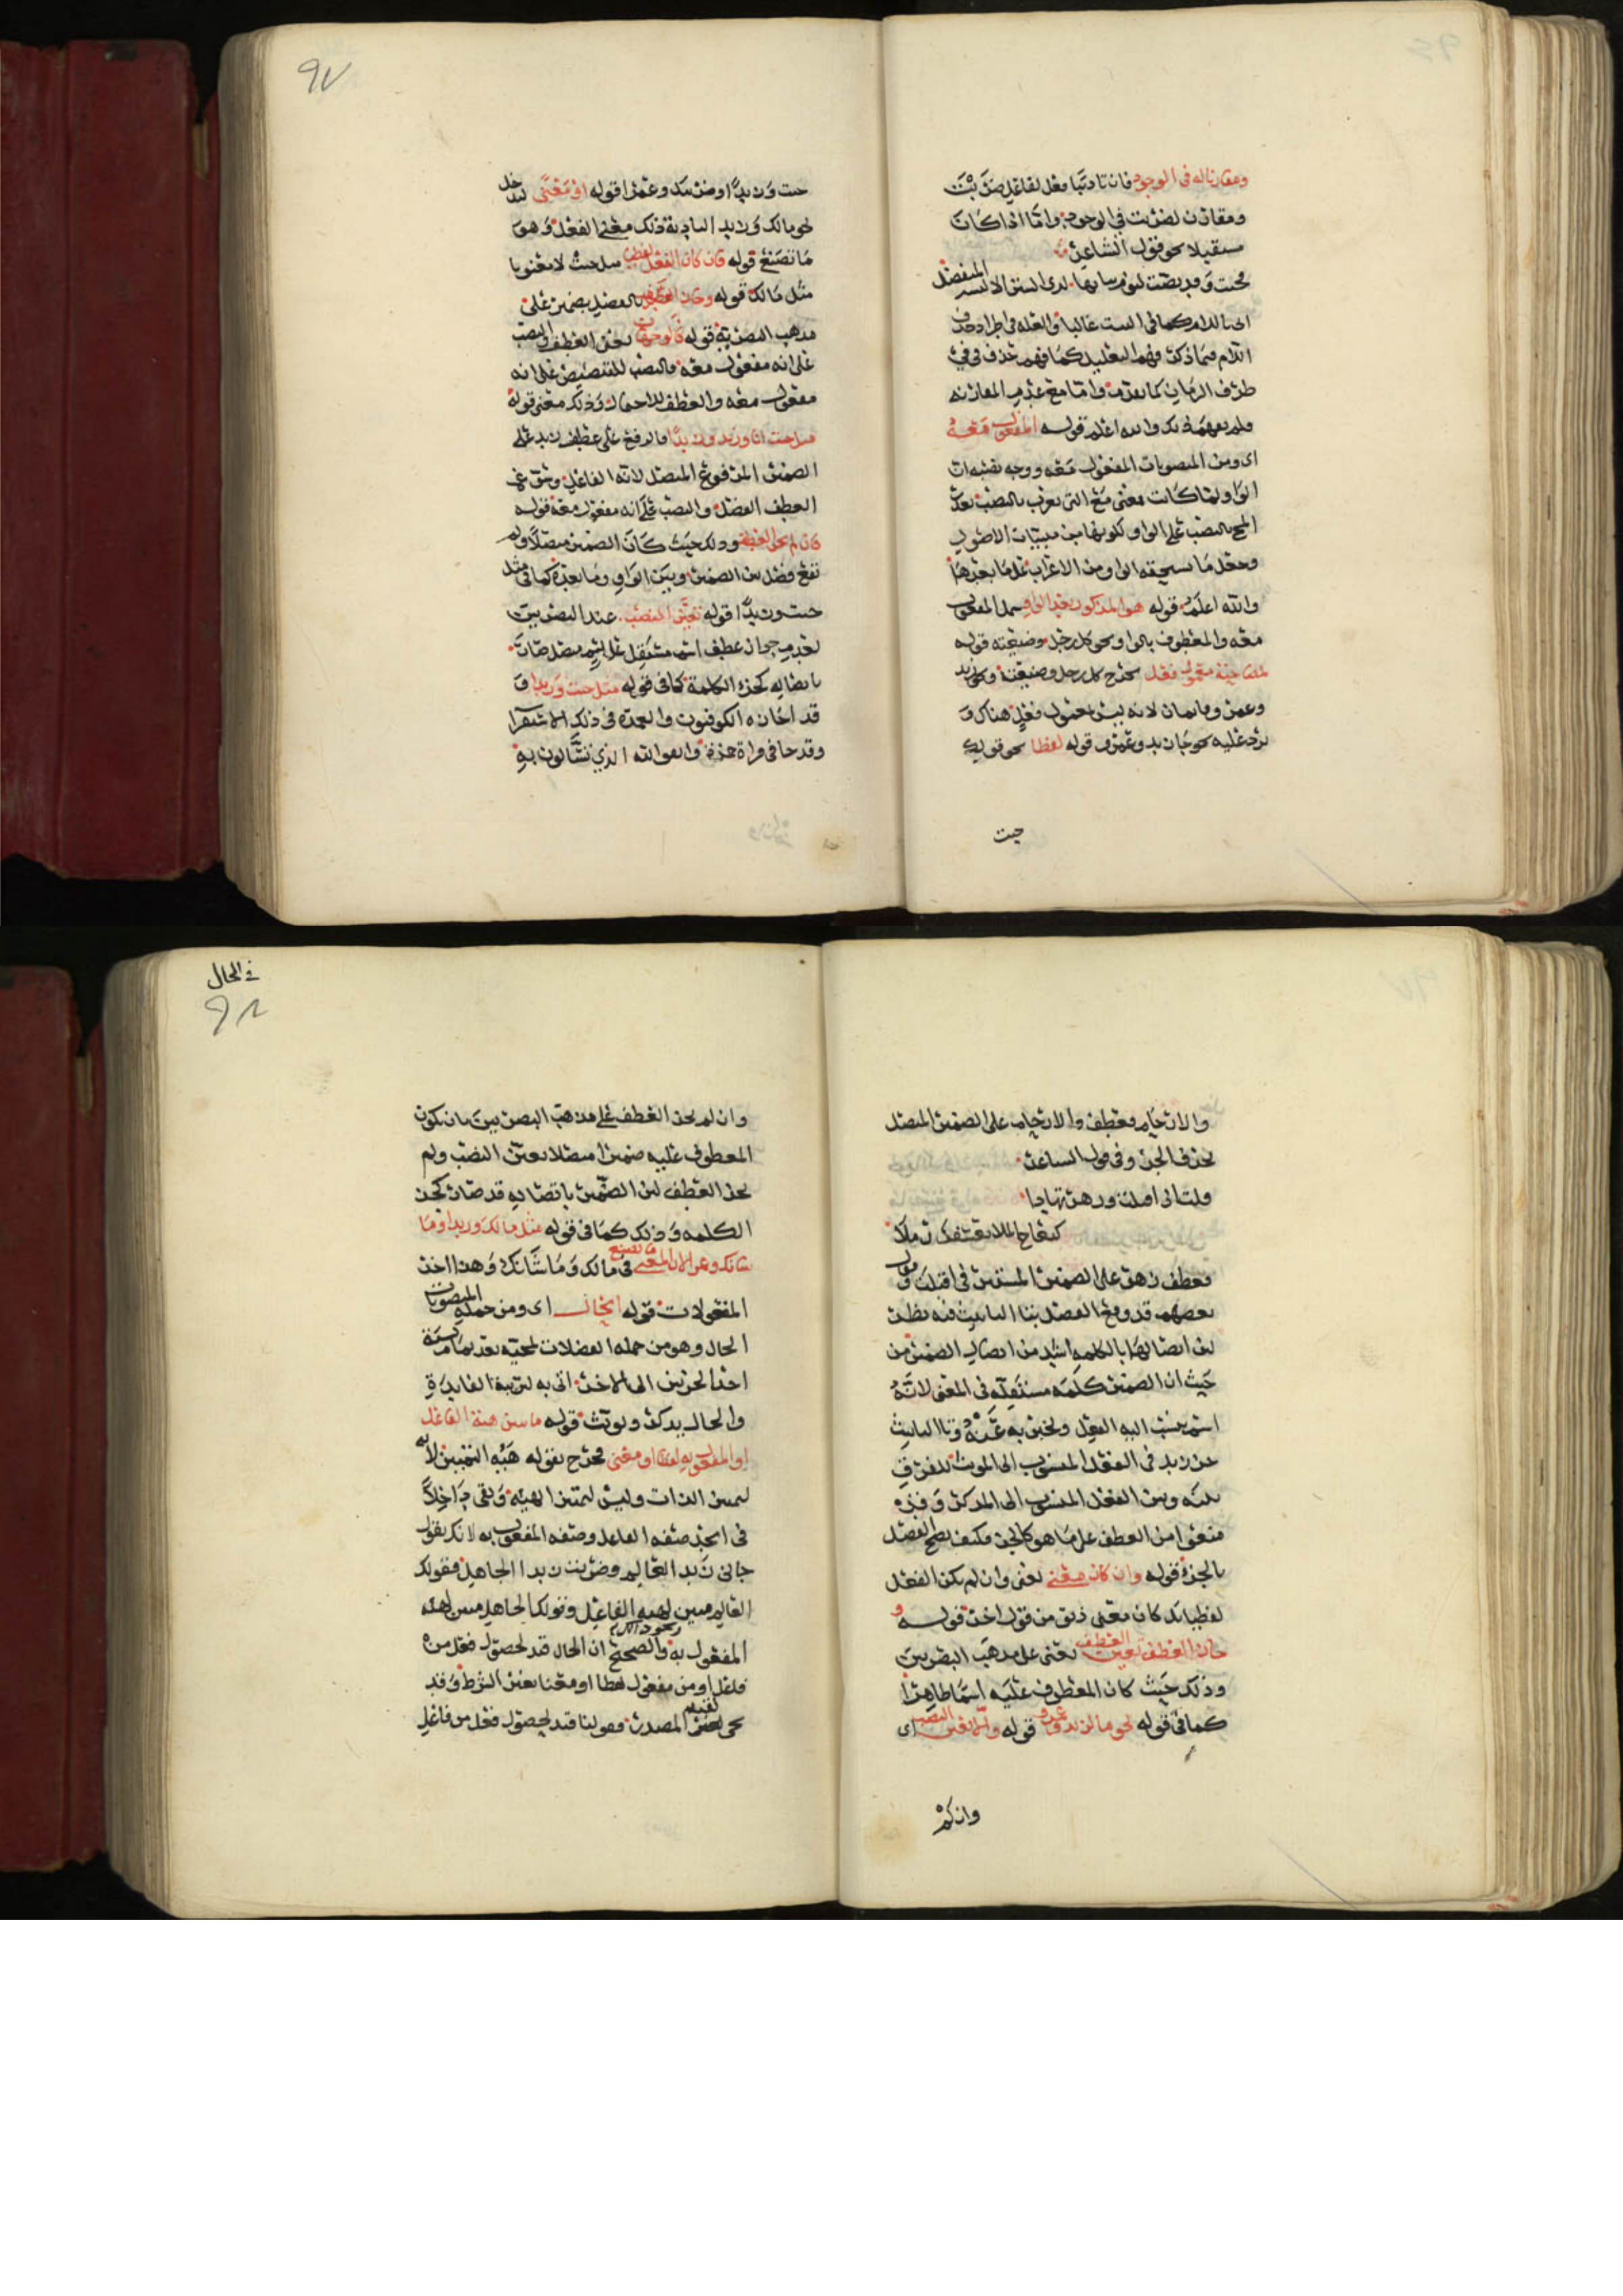 ومقارنا له في الوجود فان تاديبا فعل لفاعل ضربت
ومقارن لضربت في الوجود واما اذا كان
مستقبلا نحو قول الشاعر
فجئت وقد نضت لنوم ثيابها لدى الستر الا لبسة المتفضل
اتى باللام كما في البيت غالبا والعله في اطراد حذف
اللام فيما ذكر فهم التعليل كما فهم حذف في في
ظرف الزمان كما تقدم واما مع عدم المقارنه
فلم يفهم ذلك والله اعلم قوله المفعول معه
اي ومن المنصوبات المفعول معه ووجه نصبه ان
الواو لما كانت بمعنى مع التي تعرب بالنصب تعذر
النصب على الواو لكونها من مبنيات الاصول
وجعل ما تستحقه الواو من الاعراب على ما بعدها
والله اعلم قوله هو المذكور بعد الواو يشمل المفعول
معه والمعطوف بالواو نحو كل رجل وضيعته قوله
لمصاحبة معمول فعل يخرج كل رجل وضيعته وكل زيد
وعمرو لانه ليس معمول فعل هناك و
يرد عليه نحو جا زيد وعمرو قوله لفظا نحو قولك
جيت
٩٧
جيت وزيدا او ضربتك وعمرا قوله او معنى ليدخل
نحو مالك وزيدا لتاديه ذلك معنى الفعل وهو
ما تصنع قوله فان كان الفعل لفظيا مثل جيت لا معنويا
مثل مالك قوله وجاز العطف بالفصل بضمير على
مذهب البصرية قوله فالوجهان يعني العطف والنصب
على انه مفعول معه والنصب للتنصيص على انه
مفعول معه والعطف للاحتمال وذلك معنى قوله
مثل جيت انا وزيد وزيدا فالرفع على عطف زيد على
الضمير المرفوع المتصل لانه الفاعل وسوغ
العطف الفصل والنصب على انه مفعول معه قوله
فان لم يجز العطف وذلك حيث كان الضمير متصلا ولم
يقع فصل بين الضمير وبين الواو وما بعده كما في مثل
جيت وزيدا قوله تعين النصب عند البصريين
لعدم جواز عطف اسم مستقل على اسم متصل صار
باتصاله كجزء الكلمة كما في قوله مثل جيت وزيدا و
قد اجازه الكوفيون والعمدة في ذلك الاستقرا
وقد جا في قراة حمزة واتقوا الله الذي تسالون به
والارحام فعطف والارحام على الضمير المتصل
بحرف الجر وفي قول الشاعر
قلت اذ اقبلت وزهر تهادى
كنعاج الملا تعسفن رملا
فعطف زهر على الضمير المستتر في اقبلت وقال
بعضهم قد وقع الفصل بتا التانيث فيه نظر
لان اتصالها بالكلمه اشد من اتصال الضمير من
حيث ان الضمير كلمه مستقله في المعنى لانه
اسم ينسب اليه الفعل ويخبر به عنه وتا التانيث
حرف زيد في الفعل المنسوب الى المونث للفرق
بينه وبين الفعل المنسوب الى المذكر وقد
منعوا من العطف على ما هو كالجزء فكيف يصح الفصل
بالجزء قوله وان كان معنى يعني وان لم يكن الفعل
لفظيا بل كان معنى ذوق من قول اخر قوله و
جاز العطف تعين العطف يعني على مذهب البصريين
وذلك حيث كان المعطوف عليه اسما ظاهرا
كما في قوله نحو ما لزيد وعمرو قوله والا تعين النصب اي
وان لم
في الحال
٩٨
وان لم يجز العطف على مذهب البصريين بان يكون
المعطوف عليه ضميرا متصلا تعين النصب ولم
يجز العطف لان الضمير باتصاله قد صار كجزء
الكلمه وذلك كما في قوله مثل مالك وزيدا وما
شانك وعمرا لان المعنى ما تصنع في مالك وما شانك وهذا اخر
المفعولات قوله الحال اي ومن جملة المنصوبات
الحال وهو من جمله الفضلات لمجيه بعد تمام نسبة
احد الجزئين الى الاخر اتى به لتربية الفايدة
والحال يذكر ويونث قوله ما يبين هيئة الفاعل
او المفعول به لفظا او معنى يخرج بقوله هيئة التمييز لانه
ليبين الذات وليس ليبين الهيئه وبقي داخلا
في الحد صفه الفاعل وصفه المفعول به لانك تقول
جاني زيد العالم وضربت زيدا الجاهل فقولك
العالم مبين لهيئه الفاعل وقولك الجاهل مبين لهيئه
المفعول به والصحيح ان الحال قيد لحصول فعل من
فاعل او من مفعول لفظا او معنا
المصدر فقولنا قيد لحصول فعل من فاعل